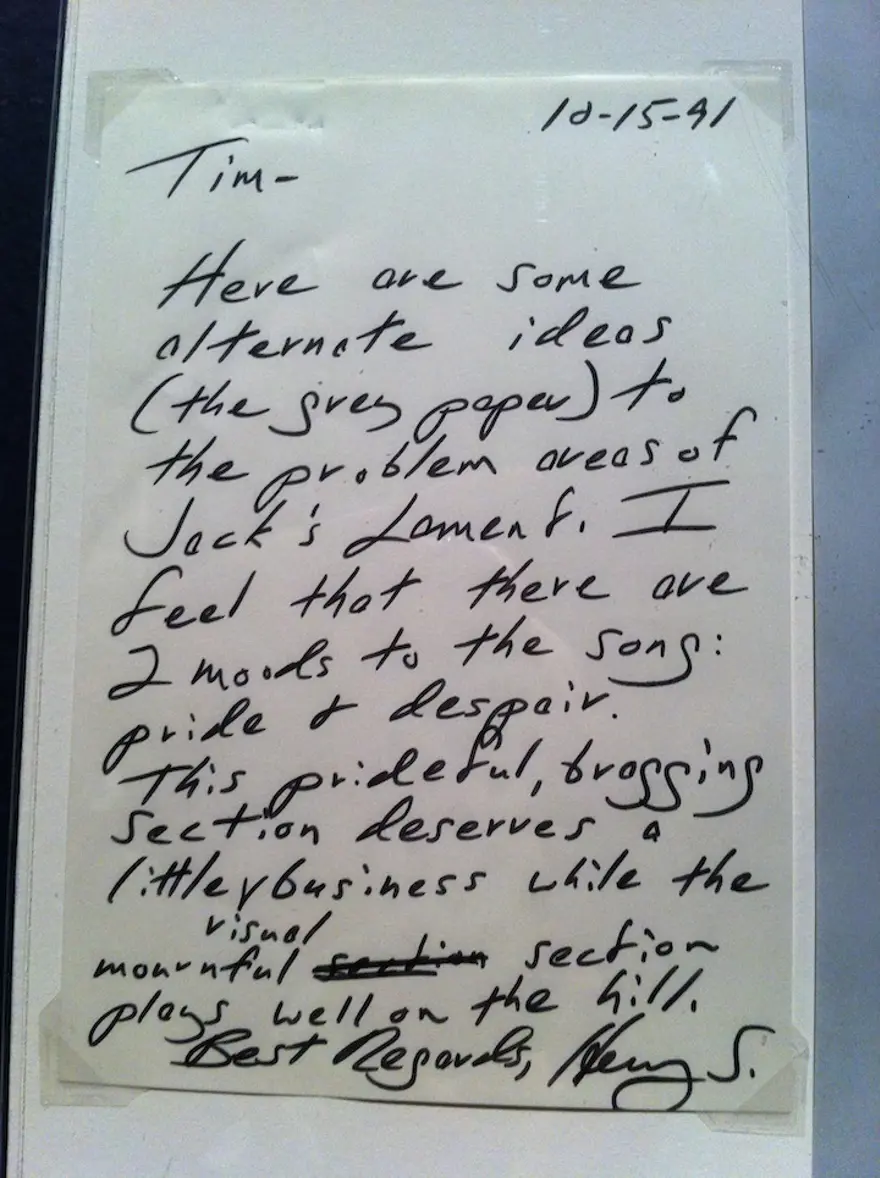 10-15-91
Tim-
Here are some
alternate ideas
(the grey paper) to
the problem areas of
Jack's Lament. I
feel that there are
2 moods to the song:
pride & despair.
This prideful, bragging
section deserves a
little visual business while the
mournful section
plays well on the hill.
Best Regards, Henry S.